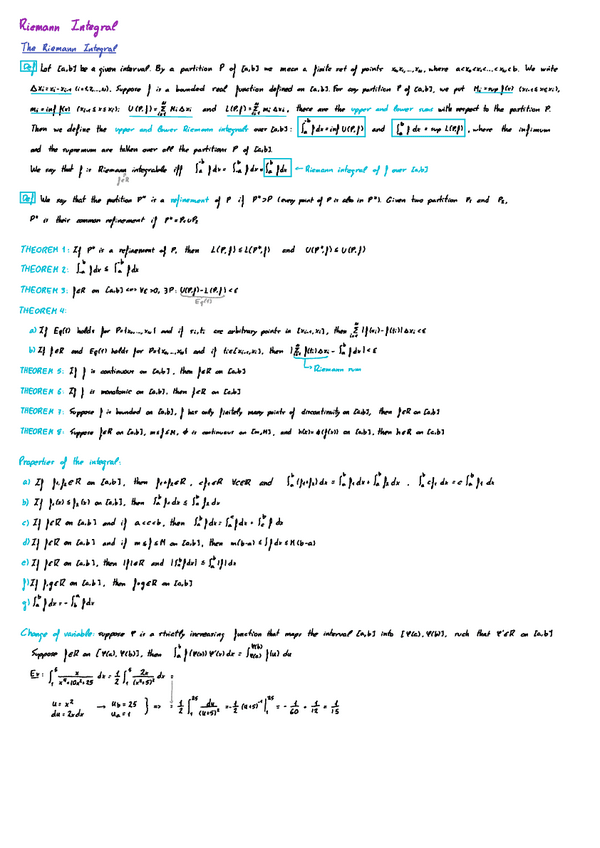 Riemann Integral
The Riemann Integral
Def Let [a,b] be a given interval. By a partition P of [a,b] we mean a finite set of points x₀,x₁,...,xₙ, where a≤x₀≤x₁≤...≤xₙ≤b. We write
Δxᵢ=xᵢ-xᵢ₋₁ (i=1,2,...,n). Suppose f is a bounded real function defined on [a,b]. For any partition P of [a,b], we put Mᵢ=sup f(x) (xᵢ₋₁≤x≤xᵢ),
mᵢ=inf f(x) (xᵢ₋₁≤x≤xᵢ); U(P,f)=Σⁿᵢ₌₁ MᵢΔxᵢ and L(P,f)=Σⁿᵢ₌₁ mᵢΔxᵢ, there are the upper and lower sums with respect to the partition P.
Then we define the upper and lower Riemann integrals over [a,b]: ∫ₐᵇ f dx=inf U(P,f) and ∫ₐᵇ f dx = sup L(P,f), where the infimum
and the supremum are taken over all the partitions P of [a,b].
We say that f is Riemann integrable iff ∫ₐᵇ f dx = ∫ₐᵇ f dx = ∫ₐᵇ f dx ← Riemann integral of f over [a,b]
f∈R
Def We say that the partition P* is a refinement of P if P*⊃P (every point of P is also in P*). Given two partition P₁ and P₂,
P* is their common refinement if P*=P₁∪P₂
THEOREM 1: If P* is a refinement of P, then L(P,f)≤L(P*,f) and U(P*,f)≤U(P,f)
THEOREM 2: ∫ₐᵇ f dx ≤ ∫ₐᵇ f dx
THEOREM 3: f∈R on [a,b] <=> ∀ε>0, ∃P: U(P,f)-L(P,f)<ε
Eq(1)
THEOREM 4:
a) If Eq(1) holds for P={x₀,...,xₙ} and if sᵢ,tᵢ are arbitrary points in [xᵢ₋₁,xᵢ], then Σⁿᵢ₌₁ |f(sᵢ)-f(tᵢ)|Δxᵢ<ε
b) If f∈R and Eq(1) holds for P={x₀,...,xₙ} and if tᵢ∈[xᵢ₋₁,xᵢ], then |Σⁿᵢ₌₁ f(tᵢ)Δxᵢ - ∫ₐᵇ f dx|<ε
↳ Riemann sum
THEOREM 5: If f is continuous on [a,b], then f∈R on [a,b]
THEOREM 6: If f is monotonic on [a,b], then f∈R on [a,b]
THEOREM 7: Suppose f is bounded on [a,b], f has only finitely many points of discontinuity on [a,b], then f∈R on [a,b]
THEOREM 8: Suppose f∈R on [a,b], m≤f≤M, Φ is continuous on [m,M], and h(x)=Φ(f(x)) on [a,b], then h∈R on [a,b]
Properties of the integral:
a) If f₁,f₂∈R on [a,b], then f₁+f₂∈R, cf₁∈R ∀c∈R and ∫ₐᵇ(f₁+f₂)dx = ∫ₐᵇ f₁ dx + ∫ₐᵇ f₂ dx , ∫ₐᵇ cf₁ dx = c∫ₐᵇ f₁ dx
b) If f₁(x)≤f₂(x) on [a,b], then ∫ₐᵇ f₁ dx ≤ ∫ₐᵇ f₂ dx
c) If f∈R on [a,b] and if a<c<b, then ∫ₐᵇ f dx = ∫ₐᶜ f dx + ∫ᶜᵇ f dx
d) If f∈R on [a,b] and if m≤f≤M on [a,b], then m(b-a)≤∫f dx≤M(b-a)
e) If f∈R on [a,b], then |f|∈R and |∫ₐᵇ f dx| ≤ ∫ₐᵇ |f| dx
f) If f,g∈R on [a,b], then f•g∈R on [a,b]
g) ∫ₐᵇ f dx = -∫ᵇₐ f dx
Change of variable: suppose φ is a strictly increasing function that maps the interval [a,b] into [φ(a),φ(b)], such that φ'∈R on [a,b]
Suppose f∈R on [φ(a),φ(b)], then ∫ₐᵇ f(φ(x))φ'(x)dx = ∫ f(u) du
Ex: ∫₁⁵ x/(x⁴+10x²+25) dx = 1/2 ∫₁⁵ 2x/(x²+5)² dx =
u=x² → u_b=25 } => = 1/2 ∫₁²⁵ du/(u+5)² = -1/2 (u+5)⁻¹ |₁²⁵ = -1/60 + 1/12 = 1/15
du=2xdx u_a=1